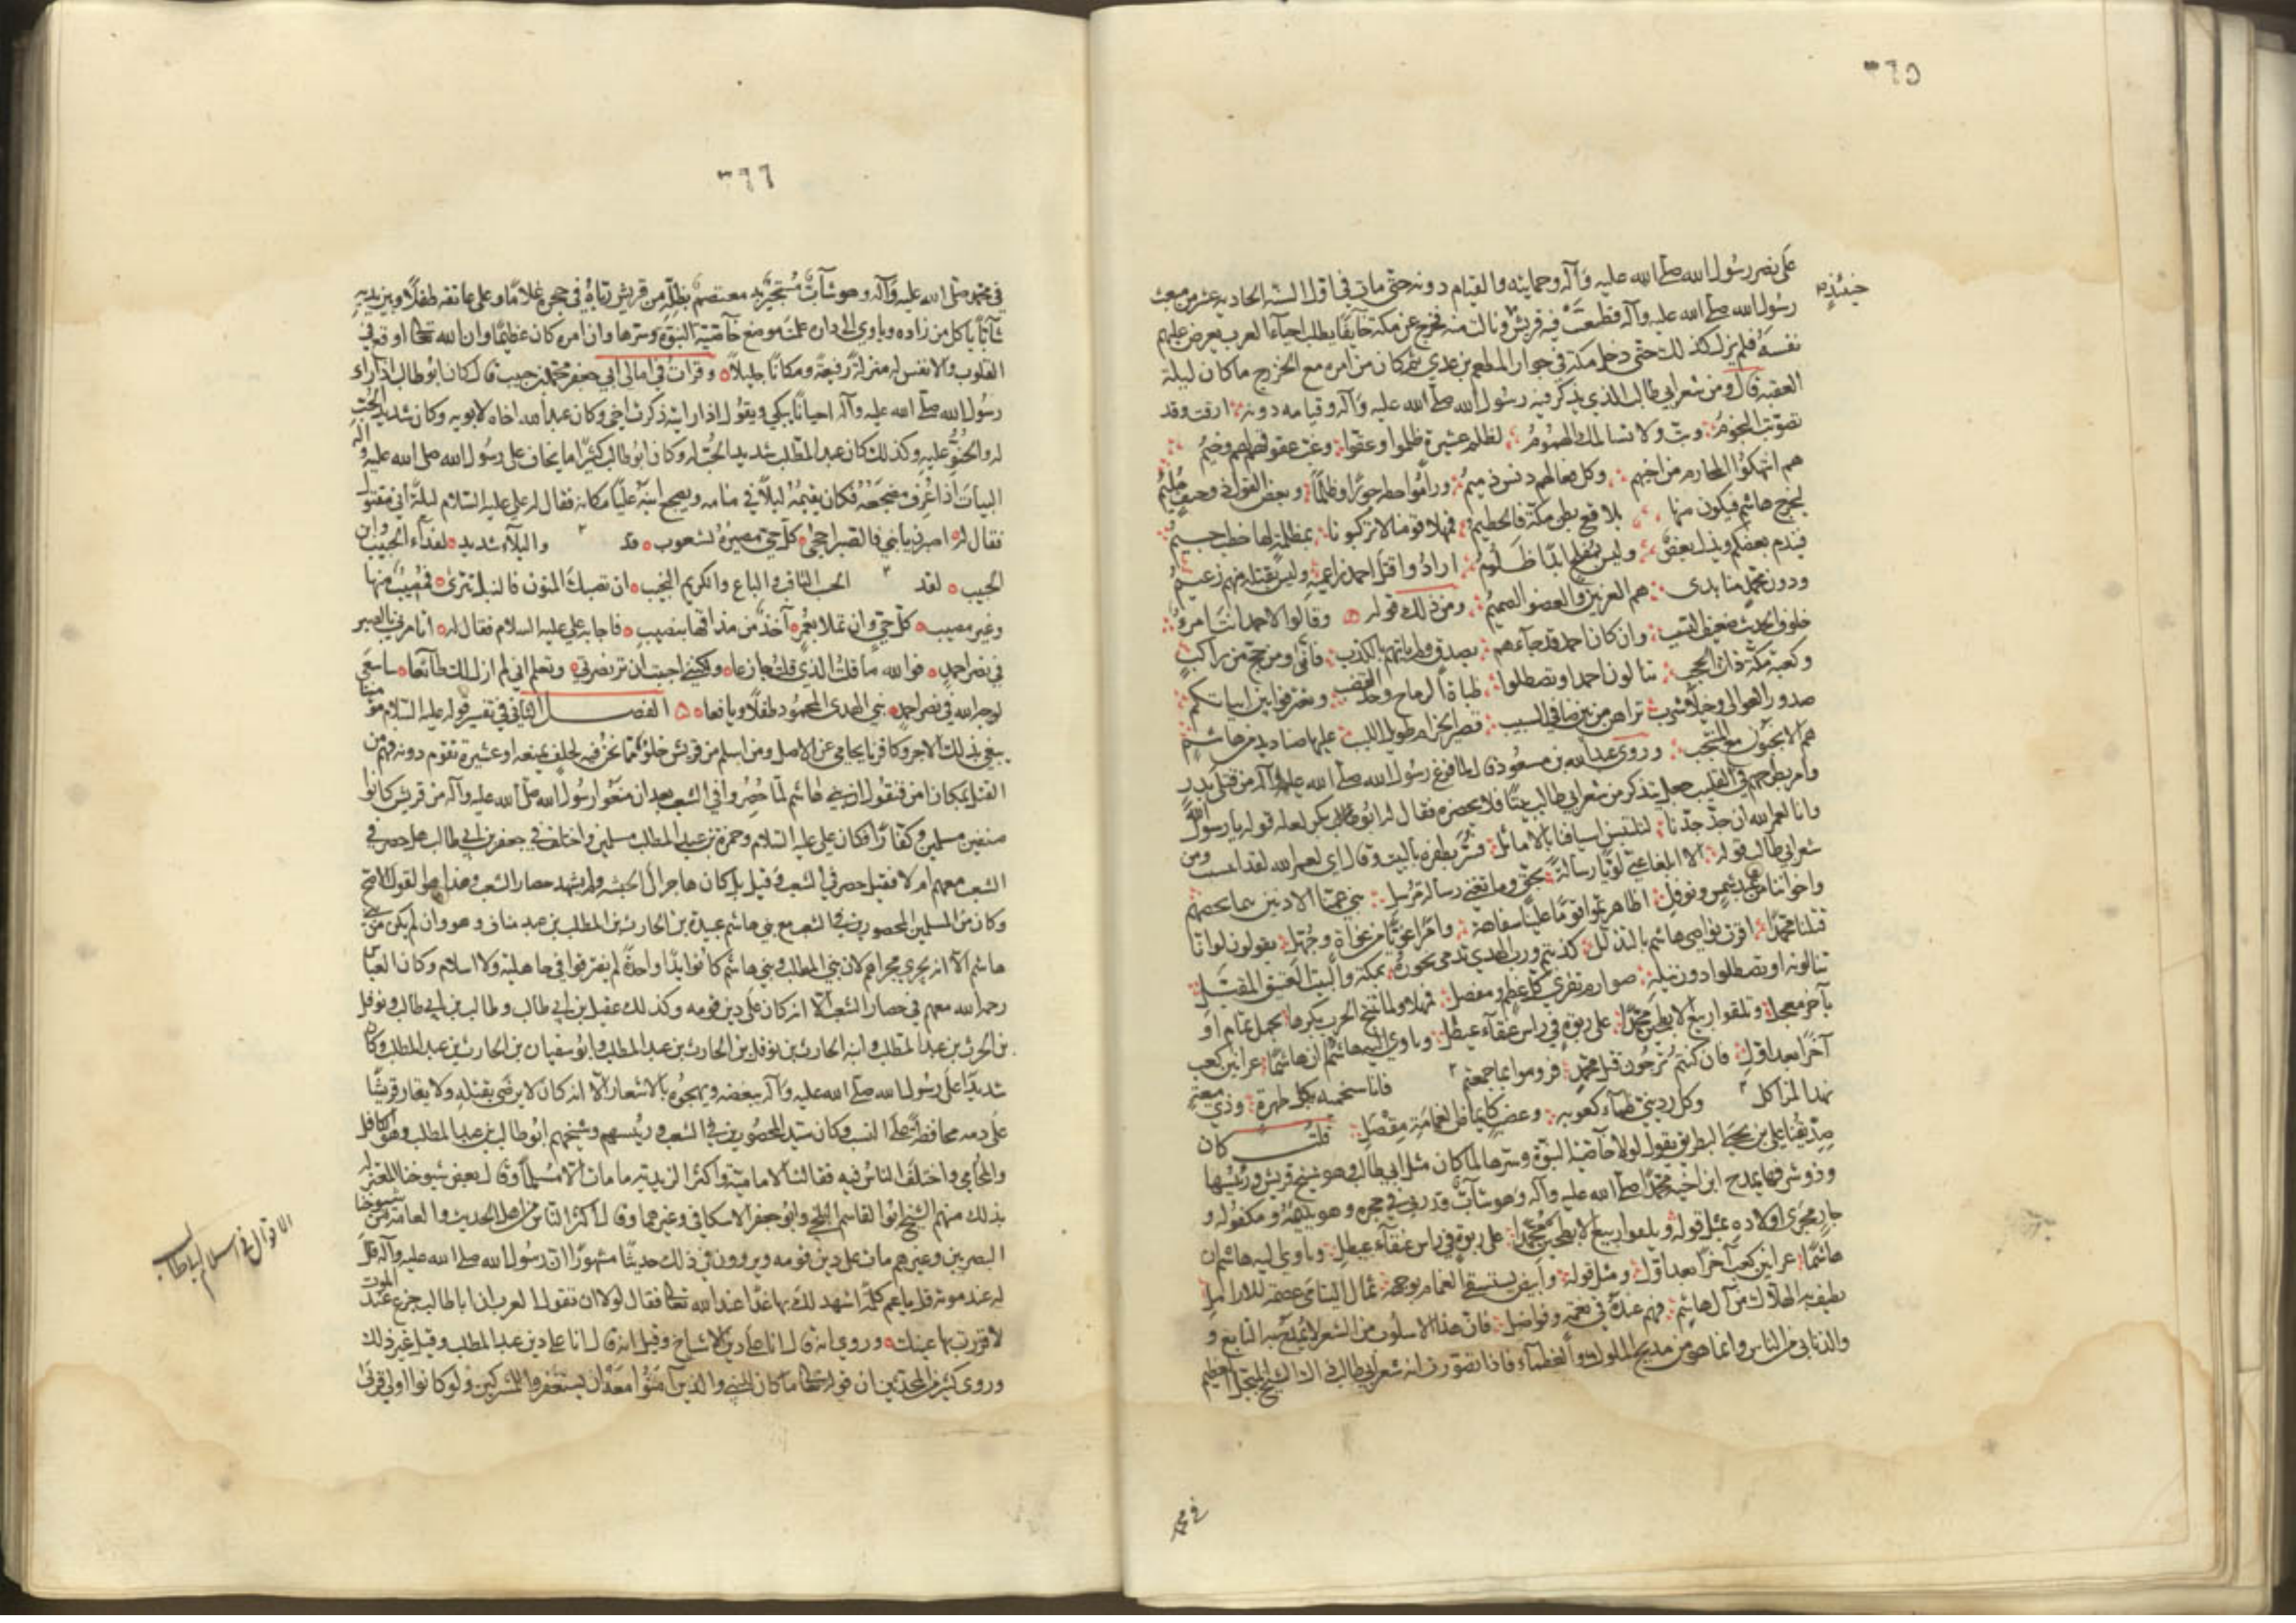 ٣٦٥
على نصر رسول الله صلى الله عليه وآله وحمايته والقيام دونه حتى مات في اول السنة الحادية عشر من مبعث
حينئذ
رسول الله صلى الله عليه وآله فطمعت فيه قريش ونالت منه فخرج عن مكة خايفا يطلب احياء العرب يعرض عليهم
نفسه فلم يزل كذلك حتى دخل مكة في جوار المطعم بن عدي ثم كان من امره مع الخزرج ما كان ليلة
العقبة قال ومن شعر ابي طالب الذي يذكر فيه رسول الله صلى الله عليه وآله وقيامه دونه ارقت وقد
تصوبت النجوم وبت ولا تسالمك الهموم لظلم عشيرة ظلموا وعقوا وغب عقوقهم لهم وخيم
هم انتهكوا المحارم من اخيهم وكل فعالهم دنس ذميم وراموا خطة جورا وظلما وبعض القول ذو جنف مليم
لتخرج هاشم فيكون منها بلاقع بطن مكة فالحطيم فمهلا قومنا لا تركبونا بمظلمة لها خطب جسيم
فيندم بعضكم ويذل بعض وليس بمفلح ابدا ظلوم ارادوا قتل احمد زاعميه وليس بقتله منهم زعيم
ودون محمد منا ندى هم العرنين والعضو الصميم ومن ذلك قوله وقالوا لاحمد انت امرؤ
خلوف الحديث ضعيف النسب وان كان احمد قد جاءهم بصدق ولم ياتهم بالكذب فانى ومن حج من راكب
وكعبة مكة ذات الحجب تنالون احمد او تصطلوا ظباة الرماح وحد القضب وتغترفوا بين ابياتكم
صدور العوالي وخيلا شزب تراهن من بين صافي السبيب قصير الحزام طويل اللبب عليها صناديد من هاشم
هم الانجبون مع المنتجب وروى عبد الله بن مسعود قال لما فرغ رسول الله صلى الله عليه وآله من قتلى بدر
وامر بطرحهم في القليب جعل يتذكر من شعر ابي طالب بيتا فلا يحضره فقال له ابو بكر لعله قوله يا رسول الله
وانا لعمر الله ان جد جدنا لتلتبس اسيافنا بالاماثل فسر بظفره بالبيت وقال اي لعمر الله لقد التبست ومن
شعر ابي طالب قوله الا ابلغا عني لؤيا رسالة بحق وما تغني رسالة مرسل بني عمنا الادنين فيما يخصهم
واخواننا من عبد شمس ونوفل اظاهرتم قوما علينا سفاهة وامرا غويا من غواة وجهل يقولون لو انا
قتلنا محمدا اقرت نواصي هاشم بالتذلل كذبتم ورب الهدي تدمى نحوره بمكة والبيت العتيق المقبل
تنالونه او تصطلوا دون نيله صوارم تفري كل عظم ومفصل فمهلا ولما تنتج الحرب بكرها بحمل تمام او
بآخر معجل وتلقوا ربيع الابطحين محمدا على ربوة في راس عنقاء عيطل وتاوي اليه هاشم ان هاشما عرانين كعب
آخرا بعد اول فان كنتم ترجون قتل محمد فروموا بما جمعتم فانا سنحميه بكل طمرة وذي ميعة
نهد المراكل وكل رديني ظماء كعوبه وعضب كايماض الغمامة مقصل قلت كان
صديقنا علي بن يحيى البطريق يقول لولا خاصة النبوة وسرها لما كان مثل ابي طالب وهو شيخ قريش ورئيسها
وذو شرفها يمدح ابن اخيه محمدا صلى الله عليه وآله وهو شاب قد ربي في حجره وهو يتيمه ومكفوله و
جار مجرى اولاده بمثل قوله وتلقوا ربيع الابطحين محمدا على ربوة في راس عنقاء عيطل وتاوي اليه هاشم ان
هاشما عرانين كعب آخرا بعد اول ومثل قوله وابيض يستسقى الغمام بوجهه ثمال اليتامى عصمة للارامل
يطيف به الهلاك من آل هاشم فهم عنده في نعمة وفواضل فان هذا الاسلوب من الشعر لا يمدح به التابع و
والذنابى من الناس وانما هو من مديح الملوك والعظماء فاذا تصورت انه شعر ابي طالب ذاك الشيخ المبجل العظيم
في محمد
٣٦٦
في محمد صلى الله عليه وآله وهو شاب مستجير به معتصم بظله من قريش رباه في حجره غلاما وعلى عاتقه طفلا وبين يديه
شابا ياكل من زاده وياوي الى داره علمت موضع خاصية النبوة وسرها وان امره كان عظيما وان الله تعالى اوقع في
القلوب والانفس له منزلة رفيعة ومكانا جليلا وقرات في امالي ابي جعفر محمد بن حبيب قال كان ابو طالب اذا راى
رسول الله صلى الله عليه وآله احيانا يبكي ويقول اذا رايته ذكرت اخي وكان عبد الله اخاه لابويه وكان شديد الحب
له والحنو عليه وكذلك كان عبد المطلب شديد الحب له وكان ابو طالب كثيرا ما يخاف على رسول الله صلى الله عليه وآله
البيات اذا عرف مضجعه فكان يقيمه ليلا في منامه ويضجع ابنه عليا مكانه فقال له علي عليه السلام ليلة اني مقتول
فقال له اصبرن يا بني فالصبر احجى كل حي مصيره لشعوب قد والبلاء شديد لفداء الحبيب وابن
الحبيب لقد الحسب الثاقب والباع والكريم النجيب ان تصبك المنون فالنبل تترى فمصيب منها
وغير مصيب كل حي وان تملا بعمر آخذ من مذاقها بنصيب فاجابه علي عليه السلام فقال له اتامرني بالصبر
في نصر احمد فوالله ما قلت الذي قلت جازعا ولكنني احببت ان تر نصرتي وتعلم اني لم ازل لك طائعا ساسعى
لوجه الله في نصر احمد نبي الهدى المحمود طفلا ويافعا الفصل الثاني في تفسير قوله عليه السلام مؤمننا
يبغي بذلك الاجر وكافرنا يحامي عن الاصل ومن اسلم من قريش خلو مما نحن فيه لحلف يمنعه او عشيرة تقوم دونه فهم من
القتل بمكان امن فنقول ان بني هاشم لما حصروا في الشعب بعد ان منعوا رسول الله صلى الله عليه وآله من قريش كانوا
صنفين مسلمين وكفارا فكان علي عليه السلام وحمزة بن عبد المطلب مسلمين واختلف في جعفر بن ابي طالب هل حصر في
الشعب معهم ام لا فقيل حصر في الشعب وقيل بل كان هاجر الى الحبشة ولم يشهد حصار الشعب وهذا هو القول الاصح
وكان من المسلمين المحصورين في الشعب مع بني هاشم عبيدة بن الحارث بن المطلب بن عبد مناف وهو وان لم يكن من بني
هاشم الا انه يجري مجراهم لان بني المطلب وبني هاشم كانوا يدا واحدة لم يفترقوا في جاهلية ولا اسلام وكان العباس
رحمه الله معهم في حصار الشعب الا انه كان على دين قومه وكذلك عقيل بن ابي طالب وطالب بن ابي طالب ونوفل
بن الحرث بن عبد المطلب وابنه الحارث بن نوفل بن الحارث بن عبد المطلب وابو سفيان بن الحارث بن عبد المطلب وكان
شديدا على رسول الله صلى الله عليه وآله يبغضه ويهجوه بالاشعار الا انه كان لا يرضى بقتله ولا يقار قريشا
على دمه محافظة على النسب وكان سيد المحصورين في الشعب ورئيسهم وشيخهم ابو طالب بن عبد المطلب وهو الكافل
والمحامي واختلف الناس فيه فقالت الامامية واكثر الزيدية ما مات الا مسلما وقال بعض شيوخنا المعتزلة
بذلك منهم الشيخ ابو القاسم البلخي وابو جعفر الاسكافي وغيرهما وقال اكثر الناس من اهل الحديث والعامة من شيوخنا
الاقوال في اسلام ابي طالب
البصريين وغيرهم مات على دين قومه ويروون في ذلك حديثا مشهورا ان رسول الله صلى الله عليه وآله قال
له عند موته قل يا عم كلمة اشهد لك بها غدا عند الله تعالى فقال لولا ان تقول العرب ان ابا طالب جزع عند الموت
لاقررت بها عينك وروي انه قال انا على دين الاشياخ وقيل انه قال انا على دين عبد المطلب وقيل غير ذلك
وروى كثير من المحدثين ان قوله تعالى ما كان للنبي والذين آمنوا معه ان يستغفروا للمشركين ولو كانوا اولي قربى